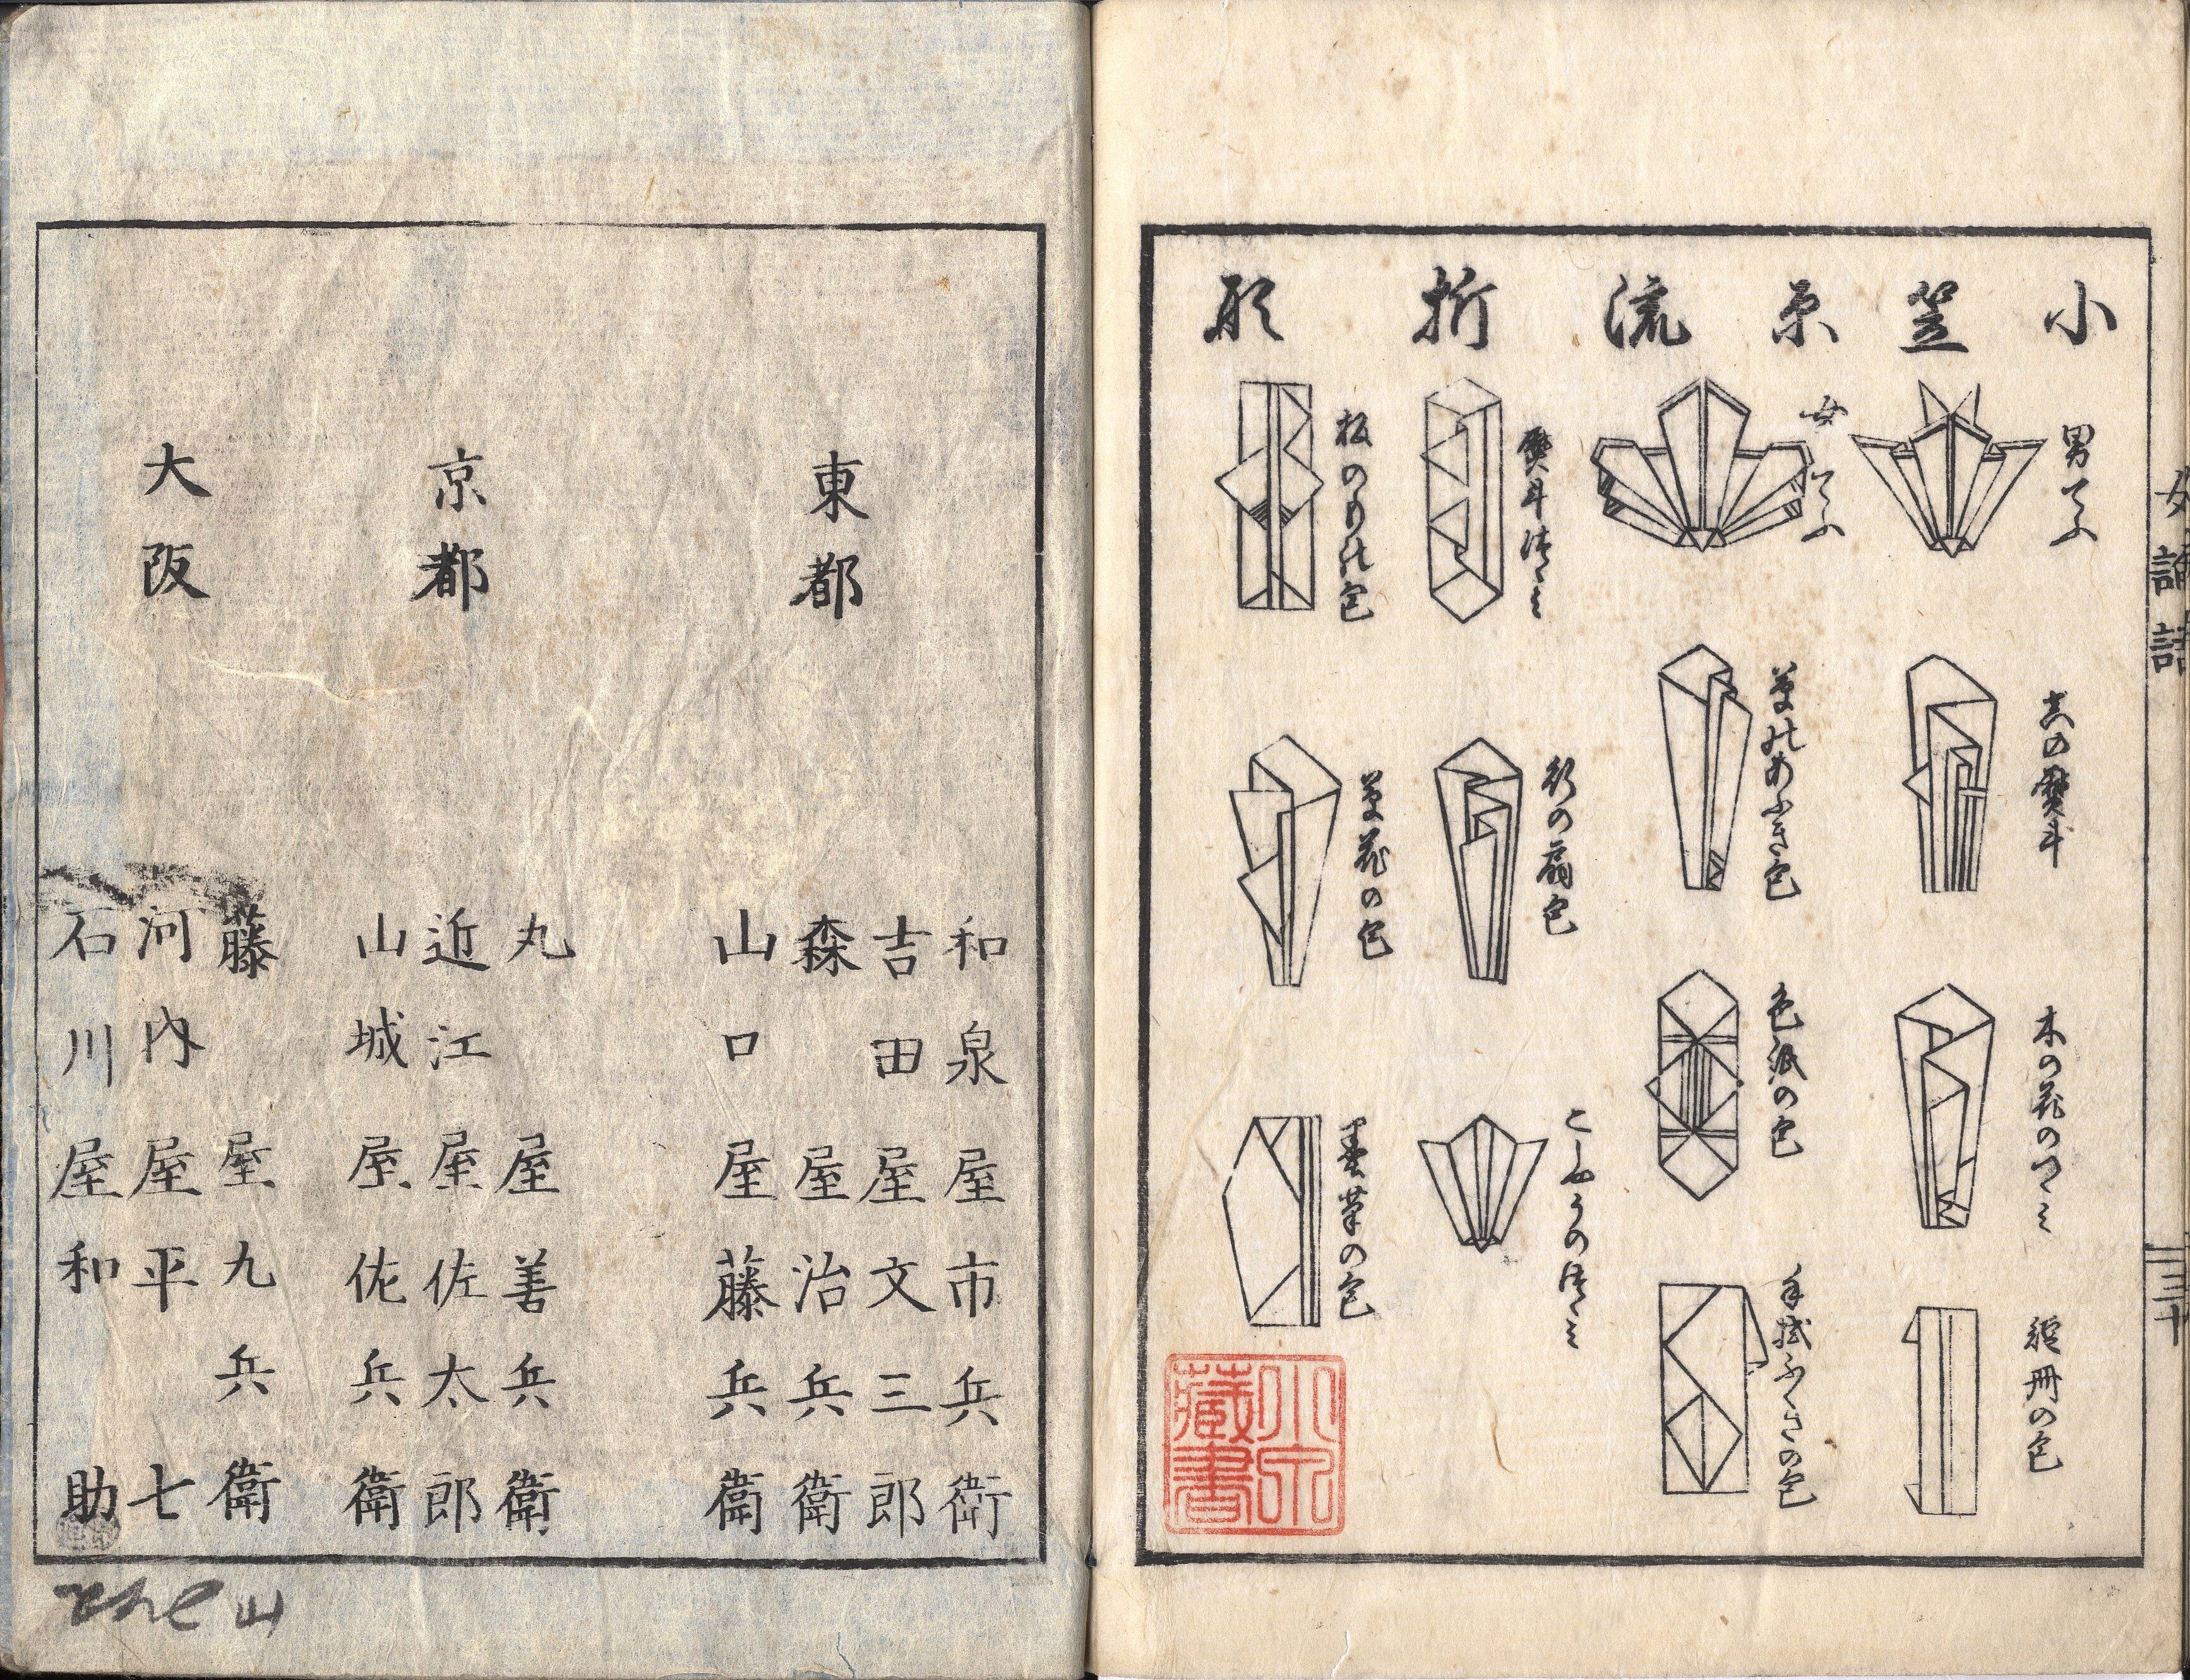 小笠原流折形
男てふ
女てふ
熨斗つゝミ
板のものの包
真の熨斗
草のあふき包
行の扇包
草花の包
木の花のつゝミ
色紙の包
こせうのつゝミ
墨筆の包
短冊の包
手拭ふくさの包
小泉蔵書
東都
和泉屋市兵衛
吉田屋文三郎
森屋治兵衛
山口屋藤兵衛
京都
丸屋善兵衛
近江屋佐太郎
山城屋佐兵衛
大阪
藤屋九兵衛
河内屋平七
石川屋和助